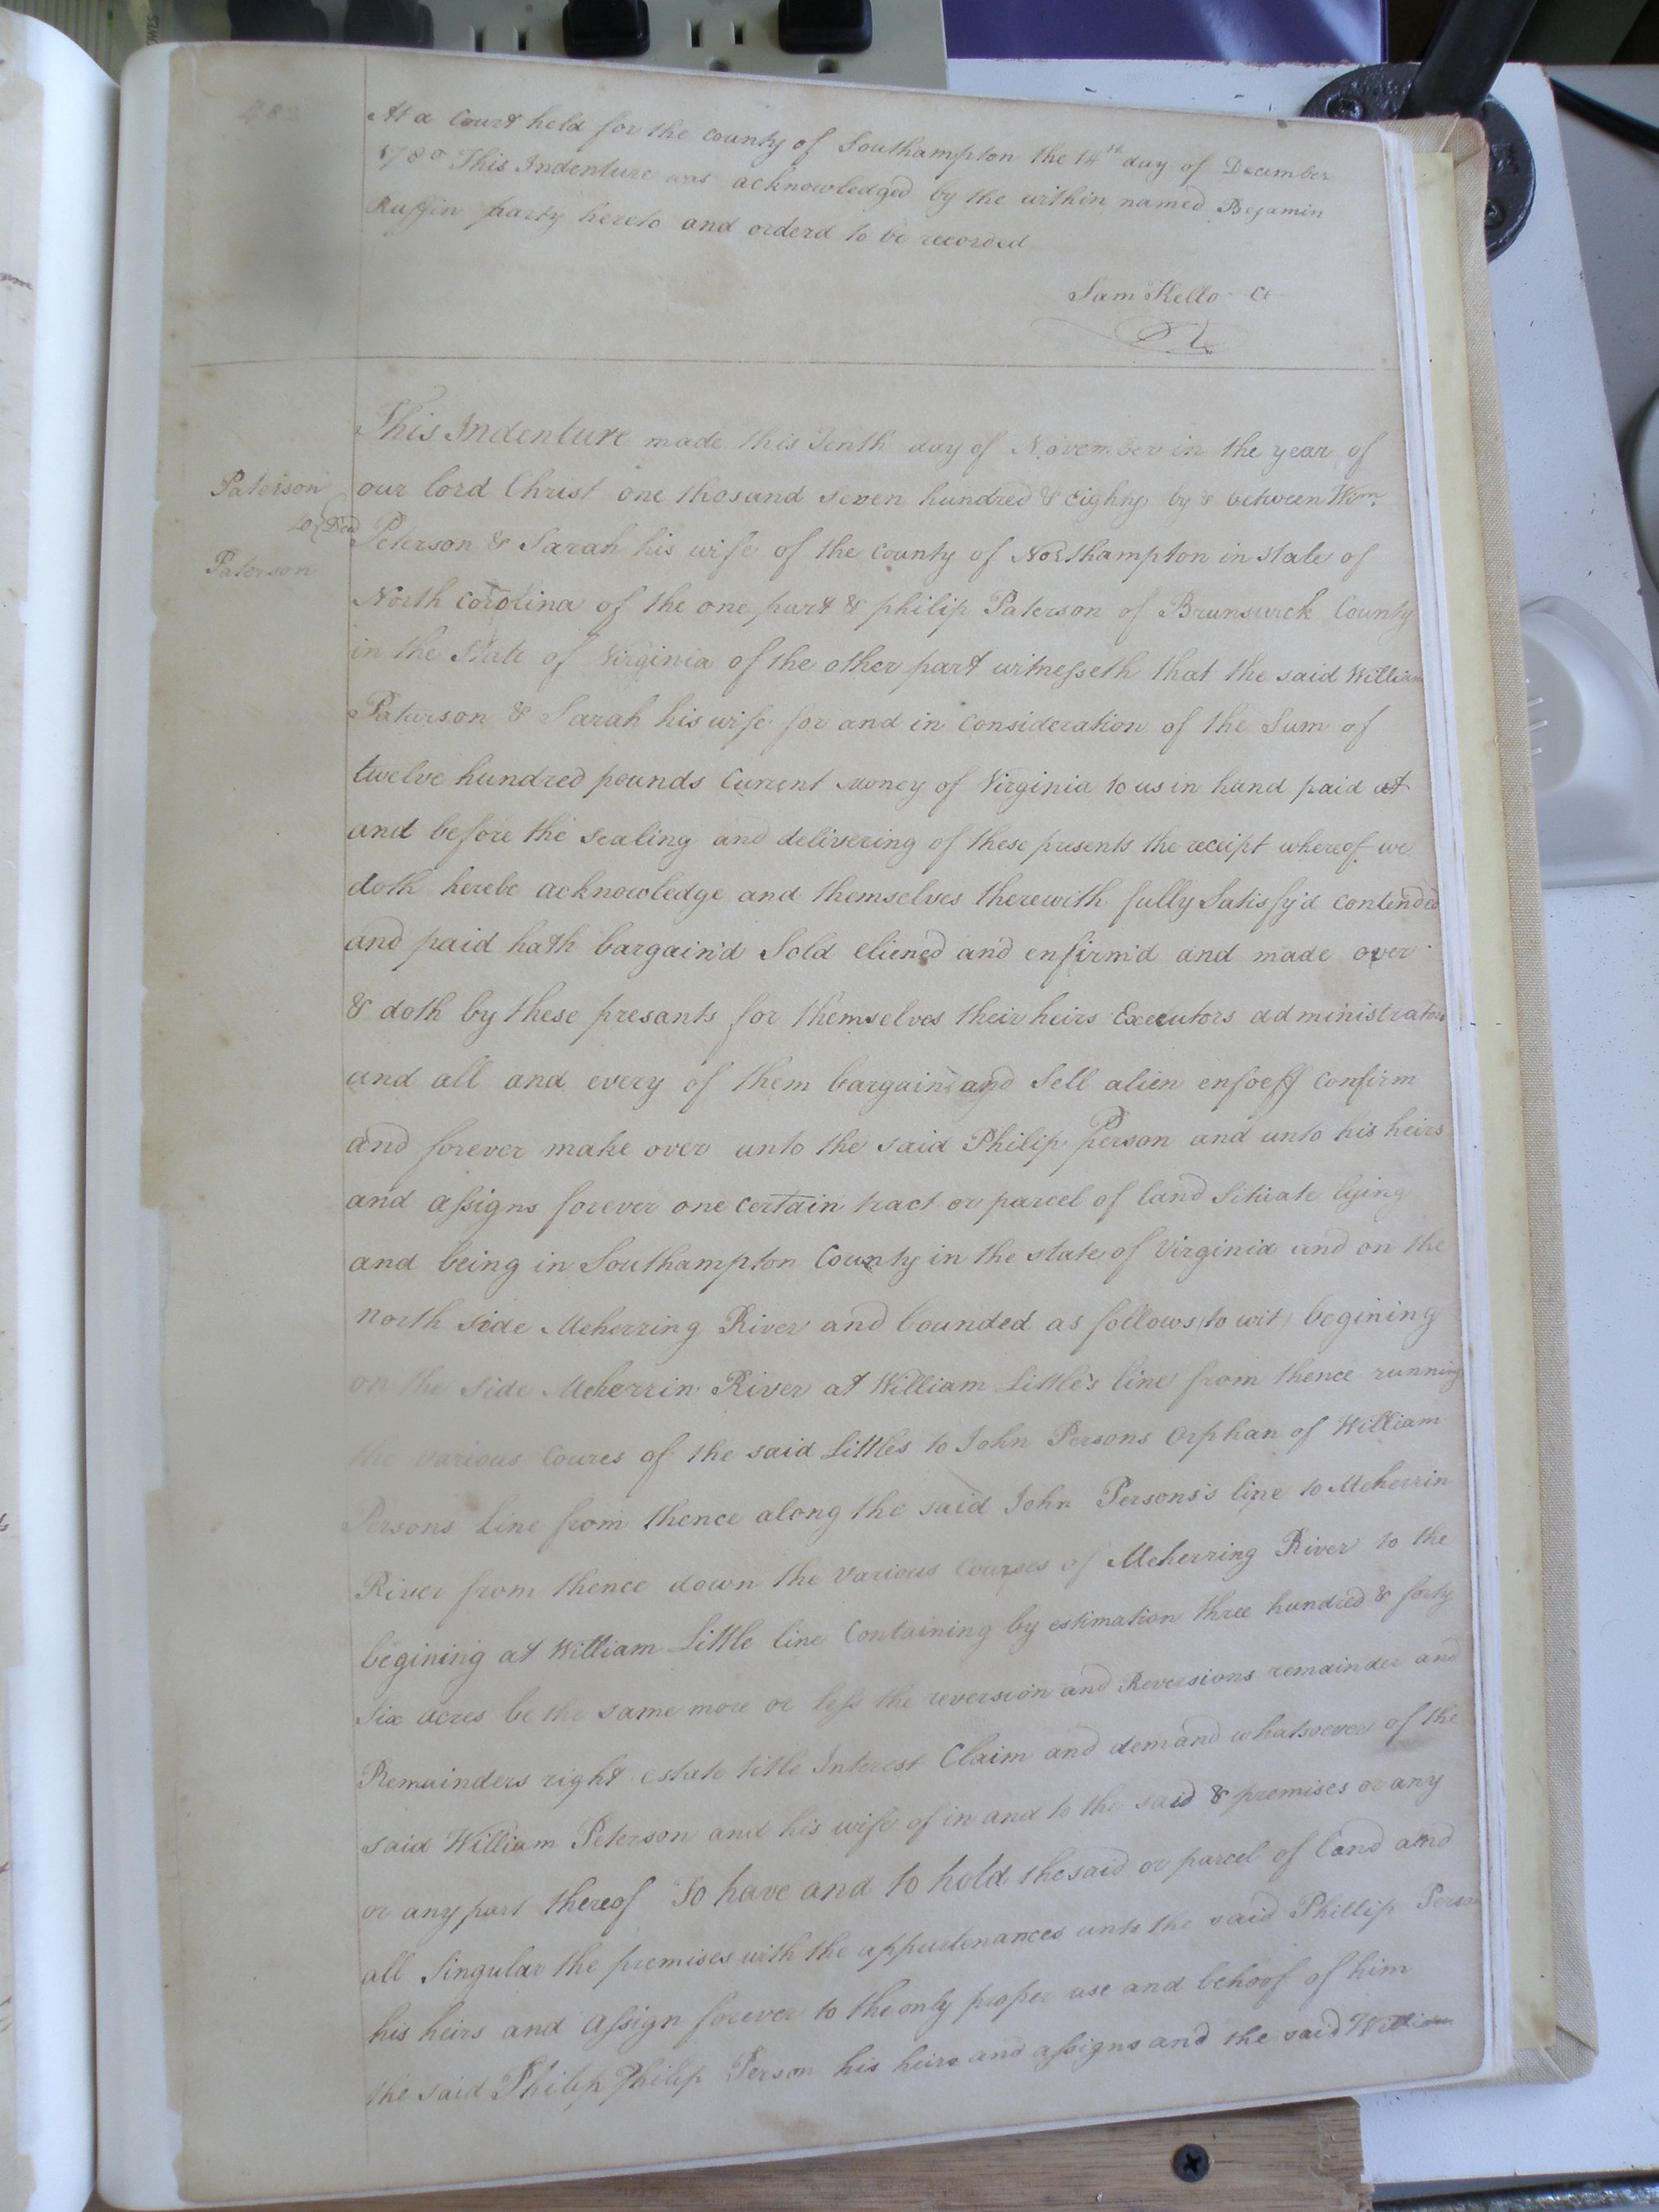 At a Court held for the county of Southampton the 14th day of December
1780 This Indenture was acknowledged by the within named Bejamin
Ruffin party hereto and orderd to be recorded
Sam Kello Ct
This Indenture made this Tenth day of November in the year of
Paterson
our lord Christ one thosand seven hundred & Eighty by & between Wm.
to Deed
Peterson & Sarah his wife of the County of Northampton in state of
Paterson
North Corolina of the one part & philip Paterson of Brunswick County
in the State of Virginia of the other part witnesseth that the said William
Paterson & Sarah his wife for and in Consideration of the Sum of
twelve hundred pounds Current Money of Virginia to us in hand paid at
and before the sealing and delivering of these presents the receipt whereof we
doth herebe acknowledge and themselves therewith fully Satisfy'd contended
and paid hath bargain'd Sold eliened and enfirm'd and made over
& doth by these presants for themselves their heirs Executors administrators
and all and every of them bargain and Sell alien enfoeff Confirm
and forever make over unto the said Philip Person and unto his heirs
and assigns forever one certain tract or parcel of land Situate lying
and being in Southampton County in the state of Virginia and on the
north side Meherring River and bounded as follows (to wit) begining
on the side Meherrin River at William Little's line from thence running
the various Coures of the said Littles to John Persons Orphan of William
Persons line from thence along the said John Persons's line to Meherrin
River from thence down the various Courses of Meherring River to the
begining at William Little line Containing by estimation three hundred & forty
six acres be the same more or less the reversion and Reversions remainder and
Remainders right estate title Interest Claim and demand whatsoever of the
said William Peterson and his wife of in and to the said & premises or any
or any part thereof To have and to hold the said or parcel of land and
all Singular the premises with the appurtenances unto the said Phillip Person
his heirs and assign forever to the only proper use and behoof of him
the said Philip Philip Person his heirs and assigns and the said William